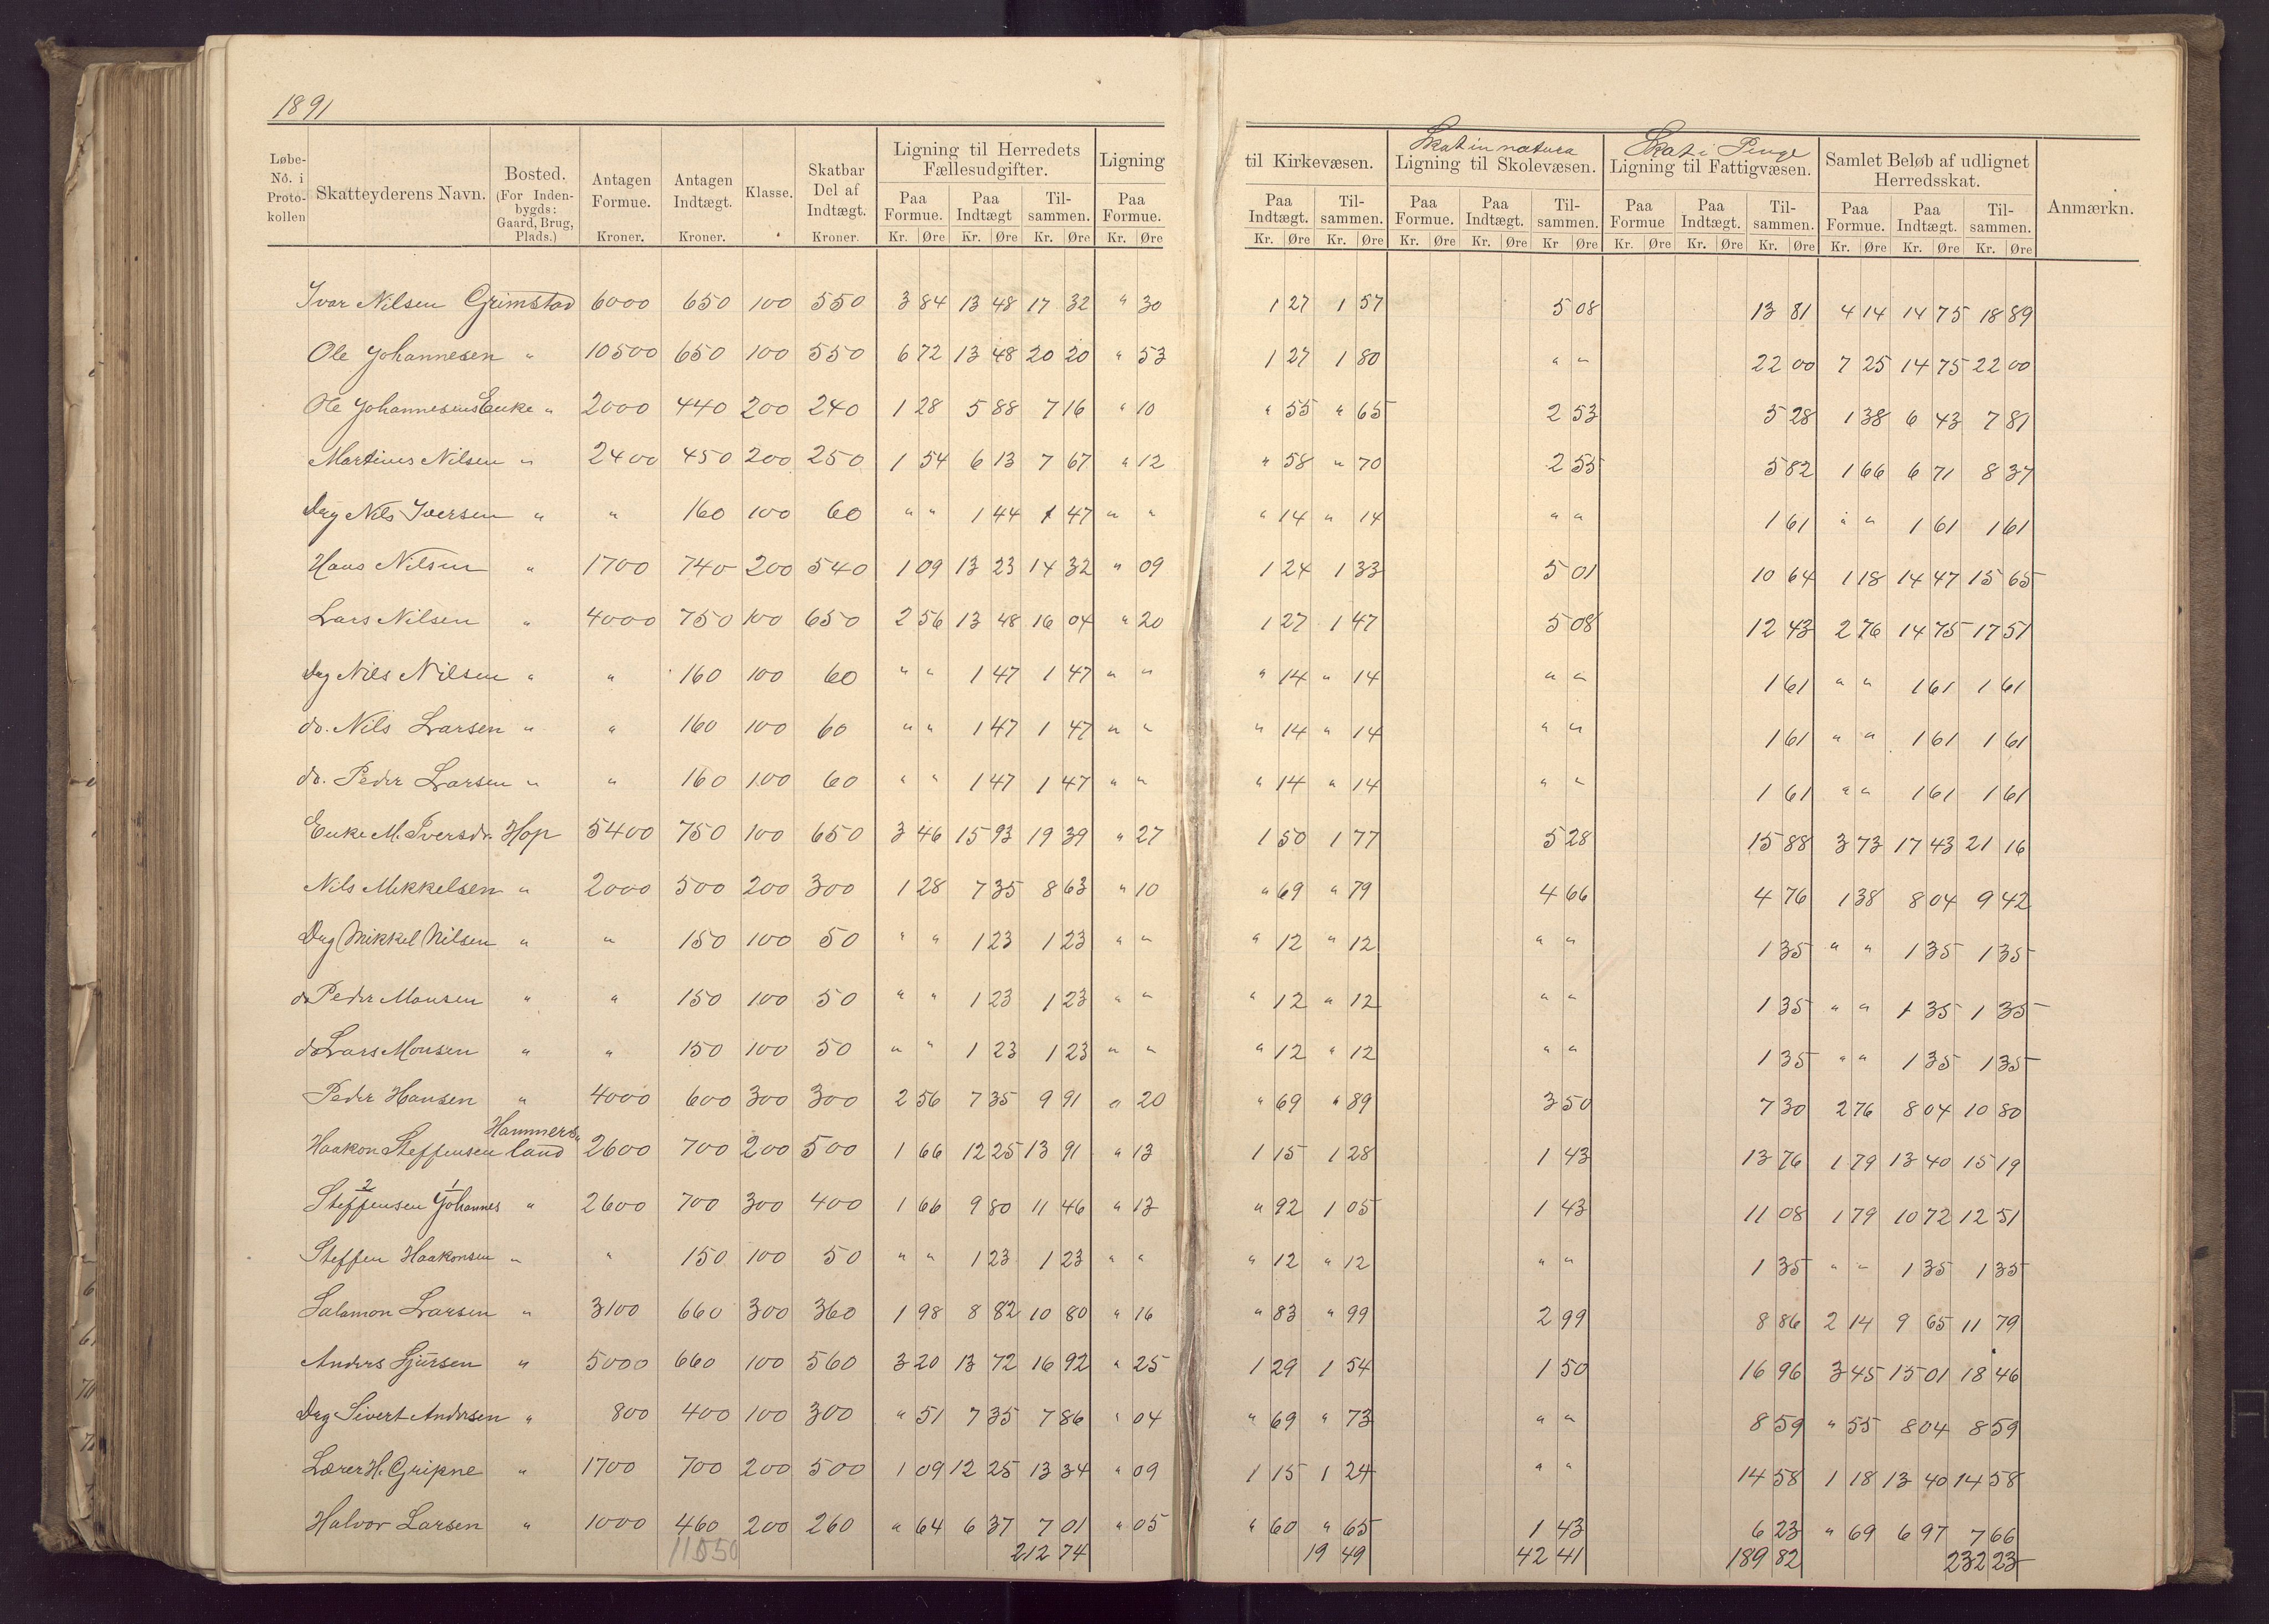 1891
Løbe- No. i Proto- kollen | Skatteyderens Navn. | Bosted. (For Inden- bygds: Gaard, Brug, Plads.) | Antagen Formue. Kroner. | Antagen Indtægt. Kroner. | Klasse. | Skatbar Del af Indtægt. Kroner. | Ligning til Herredets Fællesudgifter. Paa Formue. Kr. Øre | Paa Indtægt Kr. Øre | Til- sammen. Kr. Øre | Ligning Paa Formue. Kr. Øre | til Kirkevæsen. Paa Indtægt. Kr. Øre | Til- sammen. Kr. Øre | Skat in natura Ligning til Skolevæsen. Paa Formue. Kr. Øre | Paa Indtægt. Kr. Øre | Til- sammen. Kr Øre | Skat i Penge Ligning til Fattigvæsen. Paa Formue Kr. Øre | Paa Indtægt. Kr. Øre | Til- sammen. Kr. Øre | Samlet Beløb af udlignet Herredsskat. Paa Formue. Kr. Øre | Paa Indtægt. Kr. Øre | Til- sammen. Kr. Øre | Anmærkn.
Ivar Nilsen Grimstad 6000 650 100 550 3 84 13 48 17 32 " 30 1 27 1 57 5 08 13 81 4 14 14 75 18 89
Ole Johannesen " 10500 650 100 550 6 72 13 48 20 20 " 53 1 27 1 80 " " 22 00 7 25 14 75 22 00
Ole Johannesens Enke " 2000 440 200 240 1 28 5 88 7 16 " 10 " 55 " 65 2 53 5 28 1 38 6 43 7 81
Martinus Nilsen " 2400 450 200 250 1 54 6 13 7 67 " 12 " 58 " 70 2 55 5 82 1 66 6 71 8 37
Dreg Nils Iversen " " 160 100 60 " " 1 44 1 47 " " " 14 " 14 " " 1 61 " " 1 61 1 61
Hans Nilsen " 1700 740 200 540 1 09 13 23 14 32 " 09 1 24 1 33 5 01 10 64 1 18 14 47 15 65
Lars Nilsen " 4000 750 100 650 2 56 13 48 16 04 " 20 1 27 1 47 5 08 12 43 2 76 14 75 17 51
Dg Nils Nilsen " " 160 100 60 " " 1 47 1 47 " " " 14 " 14 " " 1 61 " " 1 61 1 61
do. Nils Larsen " " 160 100 60 " " 1 47 1 47 " " " 14 " 14 " " 1 61 " " 1 61 1 61
do. Peder Larsen " " 160 100 60 " " 1 47 1 47 " " " 14 " 14 " " 1 61 " " 1 61 1 61
Enke M. Iversdr. Hop 5400 750 100 650 3 46 15 93 19 39 " 27 1 50 1 77 5 28 15 88 3 73 17 43 21 16
Nils Mikkelsen " 2000 500 200 300 1 28 7 35 8 63 " 10 " 69 " 79 4 66 4 76 1 38 8 04 9 42
Dreg Mikkel Nilsen " " 150 100 50 " " 1 23 1 23 " " " 12 " 12 " " 1 35 " " 1 35 1 35
do Peder Monsen " " 150 100 50 " " 1 23 1 23 " " " 12 " 12 " " 1 35 " " 1 35 1 35
do Lars Monsen " " 150 100 50 " " 1 23 1 23 " " " 12 " 12 " " 1 35 " " 1 35 1 35
Peder Hansen " 4000 600 300 300 2 56 7 35 9 91 " 20 " 69 " 89 3 50 7 30 2 76 8 04 10 80
Haakon Steffensen Hammersland 2600 700 200 500 1 66 12 25 13 91 " 13 1 15 1 28 1 43 13 76 1 79 13 40 15 19
2 1
Steffensen Johannes " 2600 700 300 400 1 66 9 80 11 46 " 13 " 92 1 05 1 43 11 08 1 79 10 72 12 51
Steffen Haakonsen " " 150 100 50 " " 1 23 1 23 " " " 12 " 12 " " 1 35 " " 1 35 1 35
Salamon Larsen " 3100 660 300 360 1 98 8 82 10 80 " 16 " 83 " 99 2 99 8 86 2 14 9 65 11 79
Anders Sjursen " 5000 660 100 560 3 20 13 72 16 92 " 25 1 29 1 54 1 50 16 96 3 45 15 01 18 46
Dreg Sivert Andersen " 800 400 100 300 " 51 7 35 7 86 " 04 " 69 " 73 " " 8 59 " 55 8 04 8 59
Lærer H. Gripne " 1700 700 200 500 1 09 12 25 13 34 " 09 1 15 1 24 " " 14 58 1 18 13 40 14 58
Halvor Larsen " 1000 460 200 260 " 64 6 37 7 01 " 05 " 60 " 65 1 43 6 23 " 69 6 97 7 66
11050 212 74 19 49 42 41 189 82 232 23